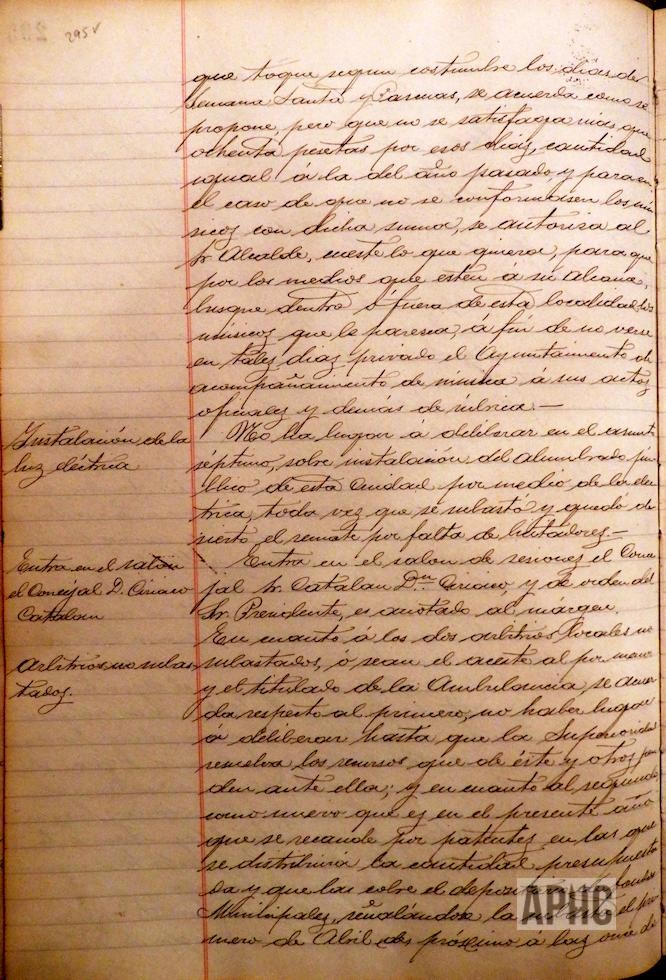 295v
que toque segun costumbre los dias de
Semana Santa y Pascuas, se acuerda como se
propone, pero que no se satisfaga mas que
ochenta pesetas por esos dias, cantidad
igual á la del año pasado y para en
el caso de que no se conformasen los mú
sicos con dicha suma, se autoriza al
Sr. Alcalde, cueste lo que quiera, para que
por los medios que estén á su alcance,
busque dentro ó fuera de esta localidad los
músicos que le parezca, a fin de no verse
en tales dias privado el Ayuntamiento de
acompañamiento de música á sus actos
oficiales y demás de rúbrica.—
Instalación de la
luz eléctrica
No ha lugar á deliberar en el asunto
séptimo, sobre instalación del alumbrado pú
blico de esta Ciudad por medio de la eléc
trica, toda vez que se subastó y quedó de
sierto el remate por falta de licitadores.—
Entra en el salon
el Concejal D. Ciriaco
Catalan
Entra en el salon de sesiones el Conce
jal Sr. Catalan Dn. Ciriaco y de orden del
Sr. Presidente, es anotado al márgen.
Arbitrios no subas
tados.
En cuanto á los dos arbitrios locales no
subastados, ó sean el aceite al por menor
y el titulado de la Ambulancia, se acuer
da respecto al primero, no haber lugar
á deliberar hasta que la Superioridad
resuelva los recursos que de éste y otros pen
den ante ella; y en cuanto al segundo
como nuevo que es en el presente año
que se recaude por patentes, en las que
se distribuirá la cantidad presupuesta
da y que las cobre el depositario de fondos
Municipales, señalándose la el pri
mero de Abril próximo á las once de
APHC